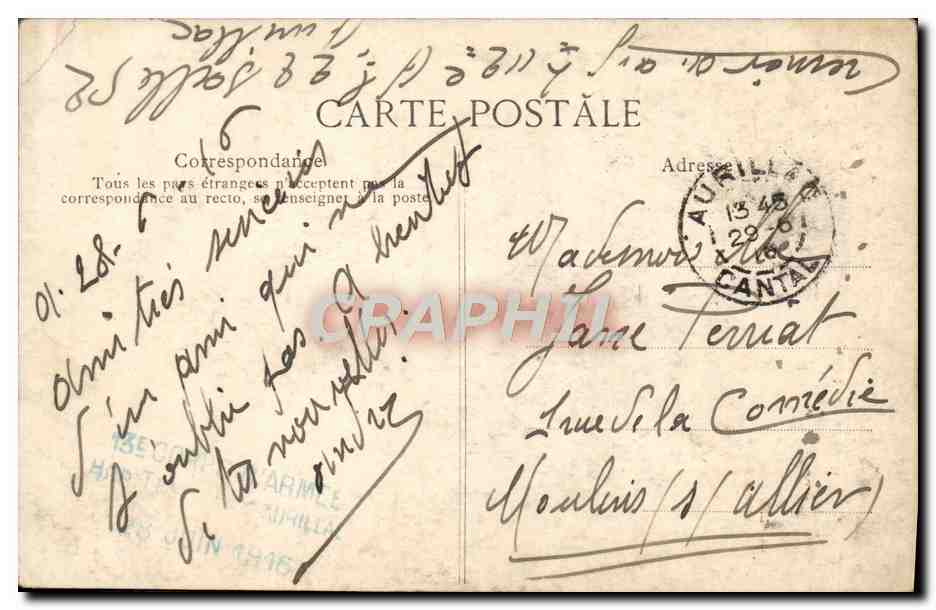 Aurillac
salle 52
CARTE POSTALE
Correspondance
Tous les pays étrangers n'acceptent pas la
correspondance au recto, se renseigner à la poste
Adresse
A. 28-6-16
amitiés sincères
d'un ami qui n
oublie pas. A bientot
de tes nouvelles.
andré
AURILLAC
13 45
29-6
16
CANTAL
Mademoiselle
Jane Perriat
rue de la Comédie
Moulins /s/ allier
13E CORPS D'ARMÉE
AURILLAC
28 JUIN 1916
CRAPHIL